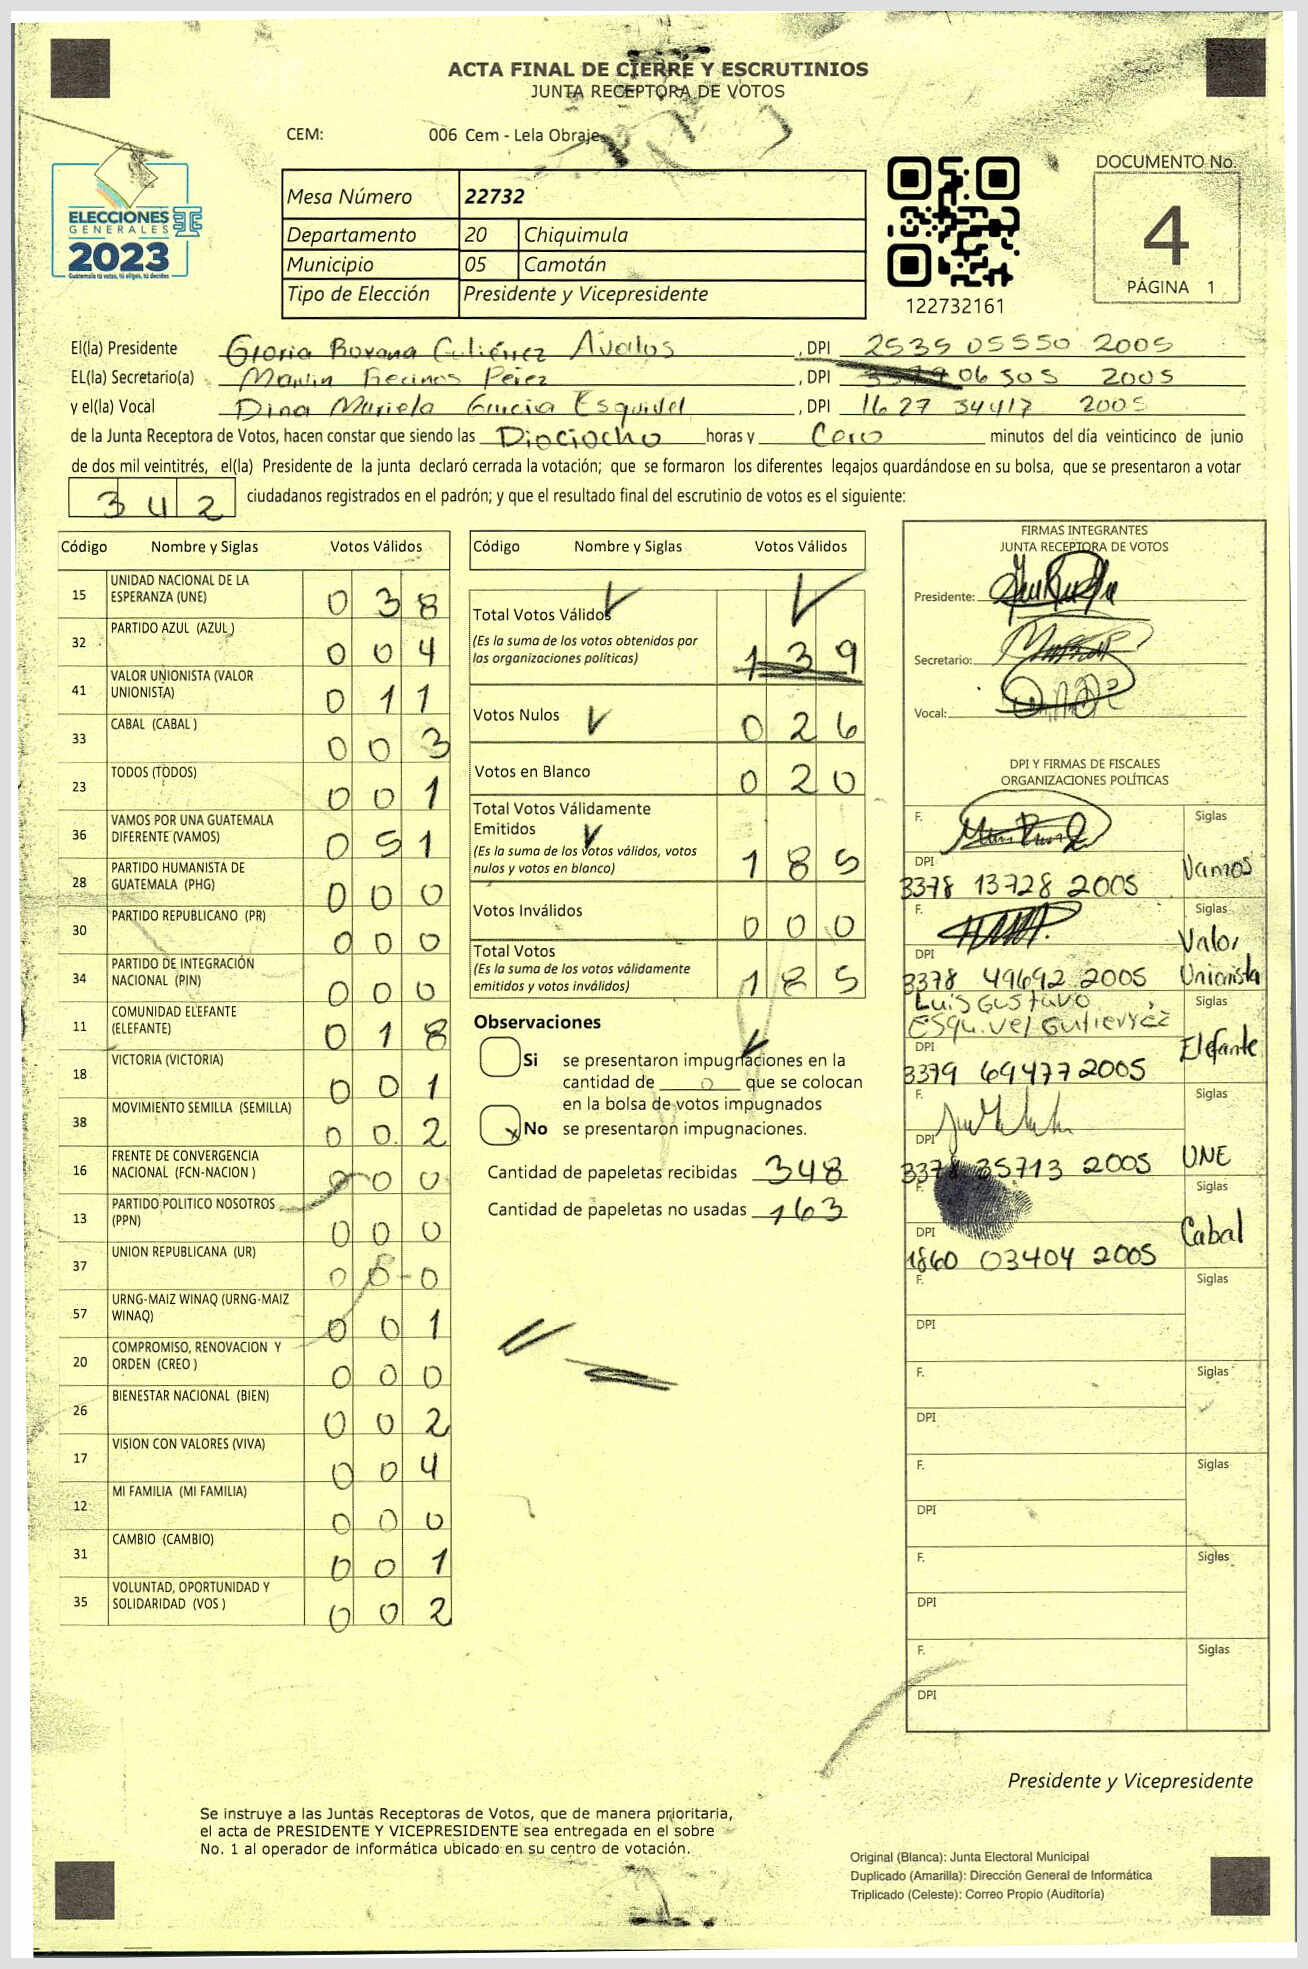 ACTA FINAL DE CIERRE Y ESCRUTINIOS
JUNTA RECEPTORA DE VOTOS
CEM: 006 Cem - Lela Obraje
ELECCIONES
GENERALES
2023
Guatemala tú votas, tú eliges, tú decides
Mesa Número 22732
Departamento 20 Chiquimula
Municipio 05 Camotán
Tipo de Elección Presidente y Vicepresidente
122732161
DOCUMENTO No.
4
PÁGINA 1
El(la) Presidente Gloria Roxana Gutiérrez Avalos , DPI 2535 05550 2005
EL(la) Secretario(a) Marlin Recinos Pérez , DPI 06505 2005
y el(la) Vocal Dina Mariela Garcia Esquivel , DPI 1627 34417 2005
de la Junta Receptora de Votos, hacen constar que siendo las Dieciocho horas y Cero minutos del día veinticinco de junio
de dos mil veintitrés, el(la) Presidente de la junta declaró cerrada la votación; que se formaron los diferentes legajos guardándose en su bolsa, que se presentaron a votar
342 ciudadanos registrados en el padrón; y que el resultado final del escrutinio de votos es el siguiente:
Código Nombre y Siglas Votos Válidos
15 UNIDAD NACIONAL DE LA ESPERANZA (UNE) 0 3 8
32 PARTIDO AZUL (AZUL ) 0 0 4
41 VALOR UNIONISTA (VALOR UNIONISTA) 0 1 1
33 CABAL (CABAL ) 0 0 3
23 TODOS (TODOS) 0 0 1
36 VAMOS POR UNA GUATEMALA DIFERENTE (VAMOS) 0 5 1
28 PARTIDO HUMANISTA DE GUATEMALA (PHG) 0 0 0
30 PARTIDO REPUBLICANO (PR) 0 0 0
34 PARTIDO DE INTEGRACIÓN NACIONAL (PIN) 0 0 0
11 COMUNIDAD ELEFANTE (ELEFANTE) 0 1 8
18 VICTORIA (VICTORIA) 0 0 1
38 MOVIMIENTO SEMILLA (SEMILLA) 0 0 2
16 FRENTE DE CONVERGENCIA NACIONAL (FCN-NACION ) 0 0 0
13 PARTIDO POLITICO NOSOTROS (PPN) 0 0 0
37 UNION REPUBLICANA (UR) 0 0 0
57 URNG-MAIZ WINAQ (URNG-MAIZ WINAQ) 0 0 1
20 COMPROMISO, RENOVACION Y ORDEN (CREO ) 0 0 0
26 BIENESTAR NACIONAL (BIEN) 0 0 2
17 VISION CON VALORES (VIVA) 0 0 4
12 MI FAMILIA (MI FAMILIA) 0 0 0
31 CAMBIO (CAMBIO) 0 0 1
35 VOLUNTAD, OPORTUNIDAD Y SOLIDARIDAD (VOS ) 0 0 2
Código Nombre y Siglas Votos Válidos
Total Votos Válidos
(Es la suma de los votos obtenidos por
las organizaciones políticas) 1 3 9
Votos Nulos 0 2 6
Votos en Blanco 0 2 0
Total Votos Válidamente
Emitidos
(Es la suma de los votos válidos, votos
nulos y votos en blanco) 1 8 5
Votos Inválidos 0 0 0
Total Votos
(Es la suma de los votos válidamente
emitidos y votos inválidos) 1 8 5
Observaciones
Si se presentaron impugnaciones en la
cantidad de 0 que se colocan
en la bolsa de votos impugnados
x No se presentaron impugnaciones.
Cantidad de papeletas recibidas 348
Cantidad de papeletas no usadas 163
FIRMAS INTEGRANTES
JUNTA RECEPTORA DE VOTOS
Presidente:
Secretario:
Vocal:
DPI Y FIRMAS DE FISCALES
ORGANIZACIONES POLÍTICAS
F. Siglas
DPI Vamos
3378 13728 2005
F. Siglas
Valor
DPI
3378 49692 2005 Unionista
Luis Gustavo Siglas
Esquivel Gutierrez
DPI Elefante
3379 69477 2005
F. Siglas
DPI
3378 35713 2005 UNE
F. Siglas
DPI Cabal
1860 03404 2005
F. Siglas
DPI
F. Siglas
DPI
F. Siglas
DPI
F. Siglas
DPI
F. Siglas
DPI
Presidente y Vicepresidente
Se instruye a las Juntas Receptoras de Votos, que de manera prioritaria,
el acta de PRESIDENTE Y VICEPRESIDENTE sea entregada en el sobre
No. 1 al operador de informática ubicado en su centro de votación.
Original (Blanca): Junta Electoral Municipal
Duplicado (Amarilla): Dirección General de Informática
Triplicado (Celeste): Correo Propio (Auditoría)